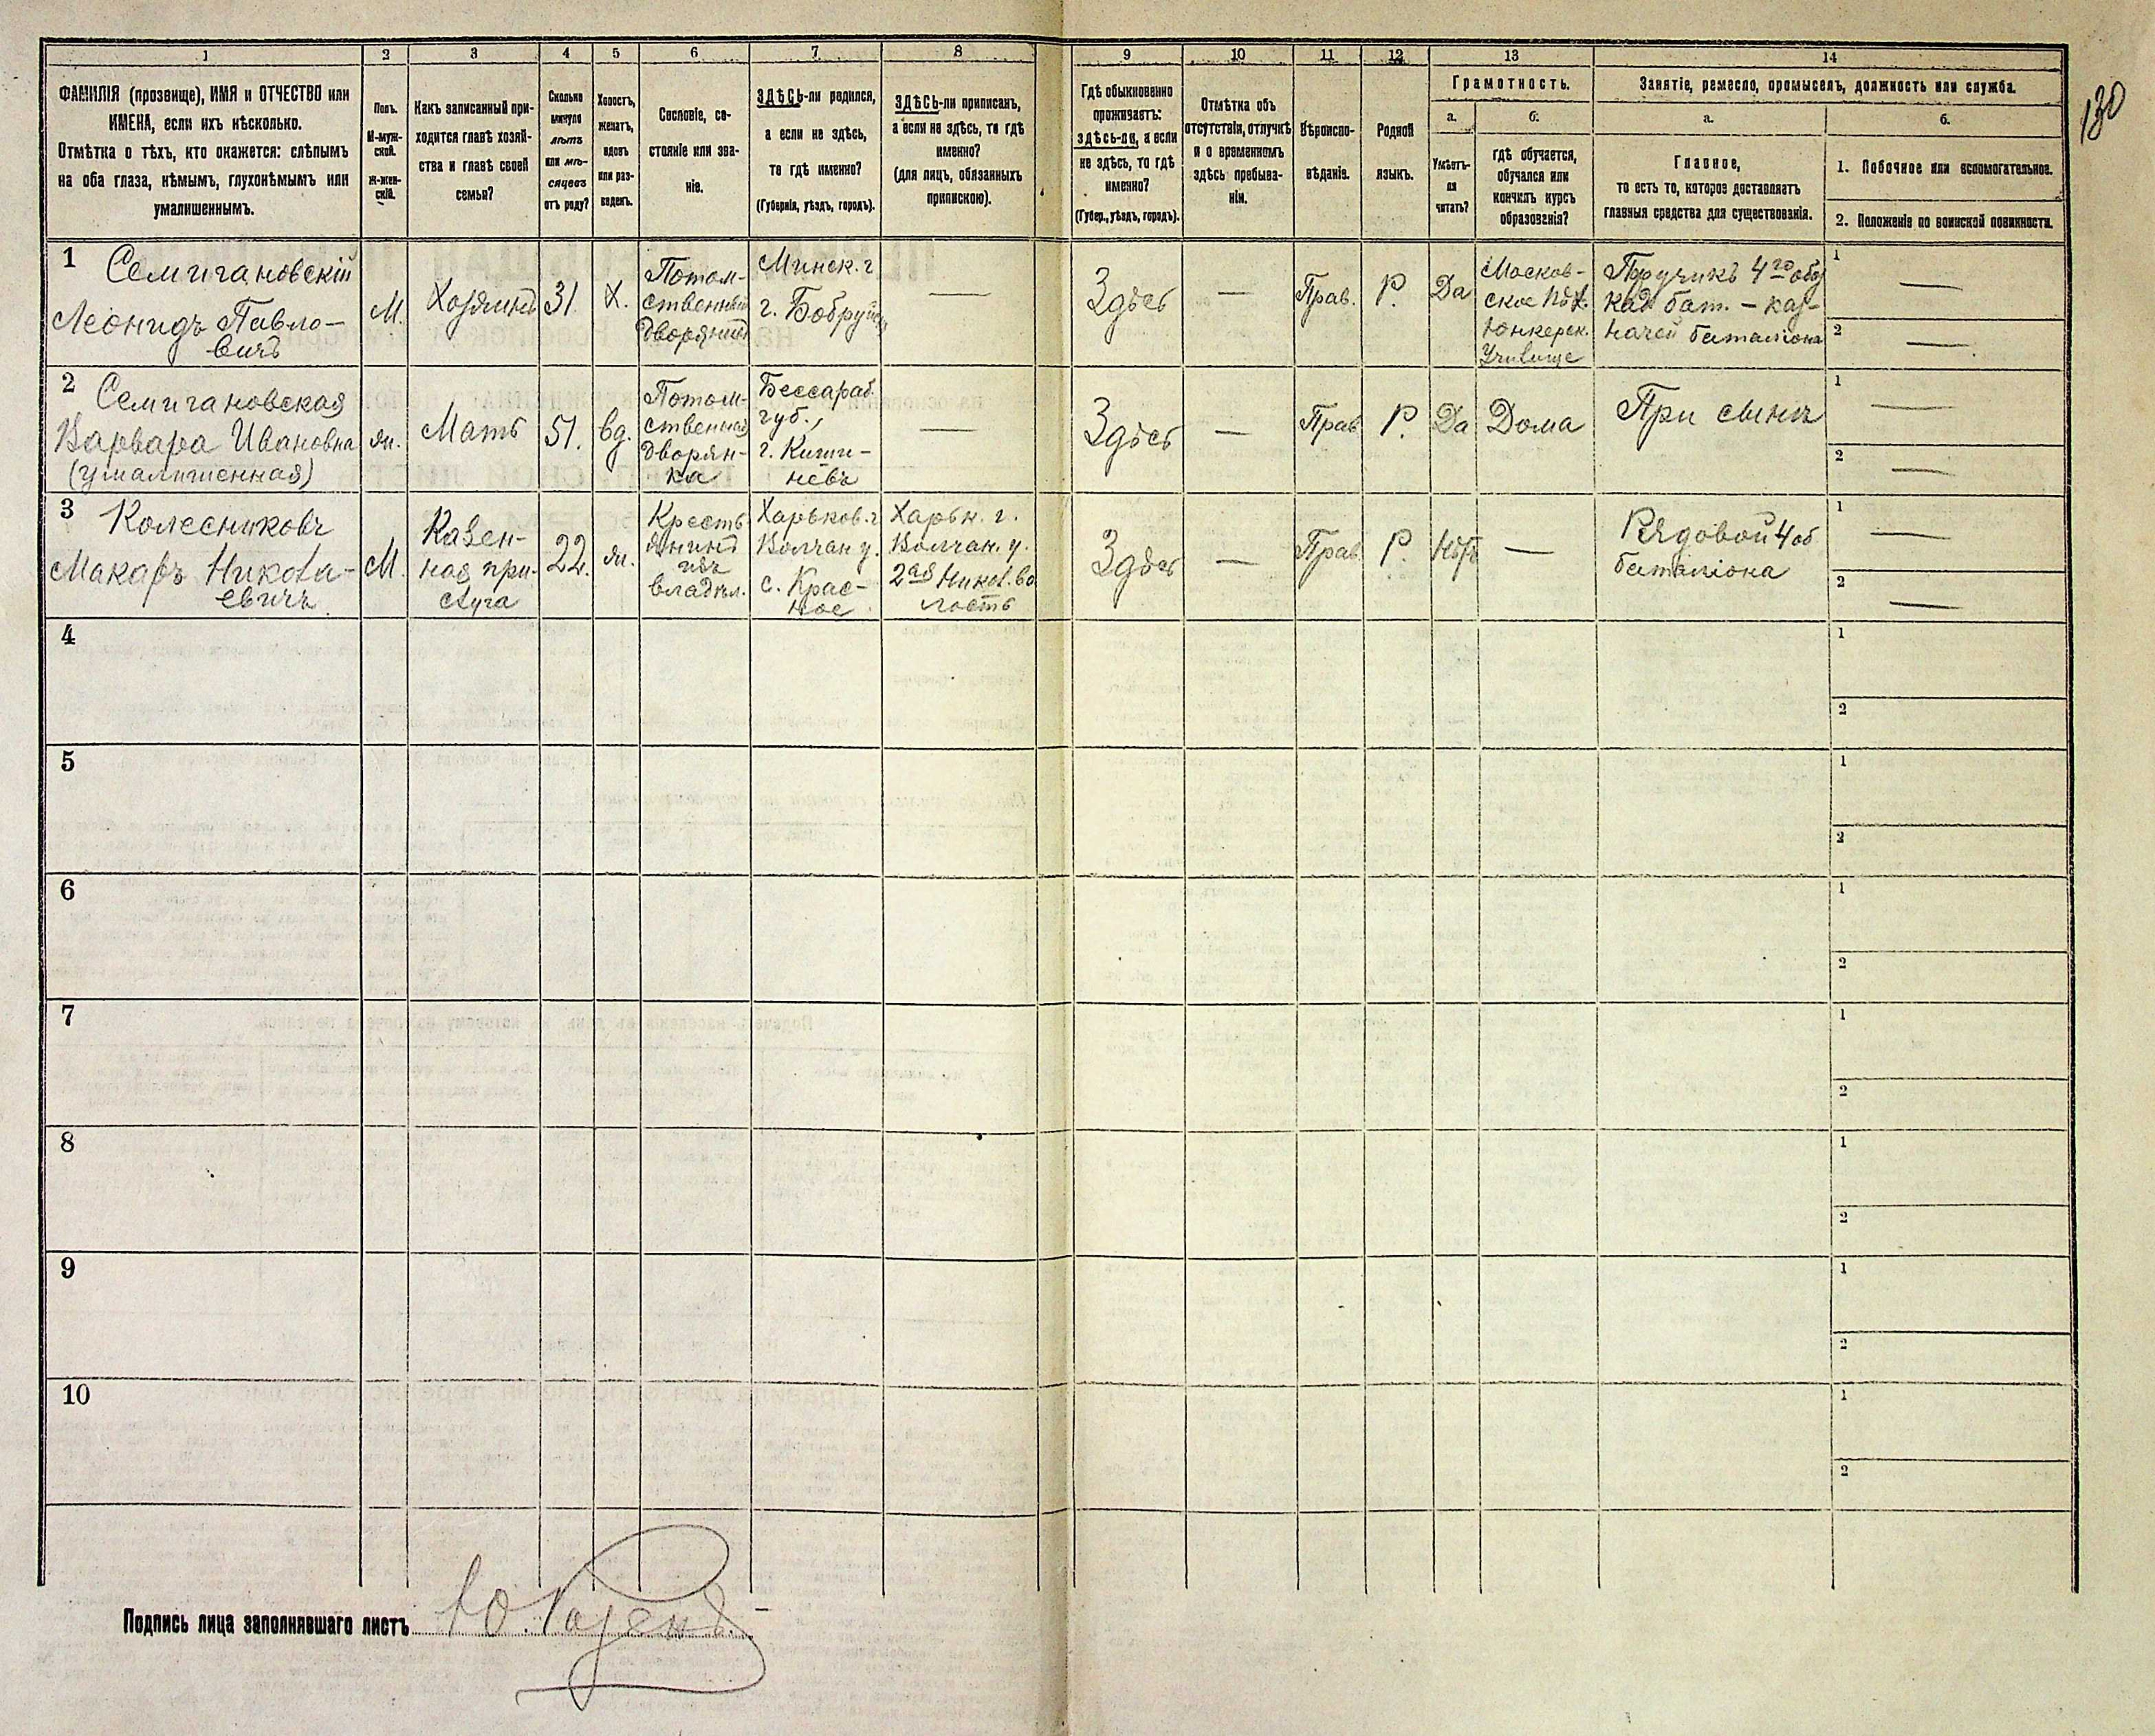 1
2
3
4
5
6
7
8
9
10
11
12
13
14
130
ФАМИЛІЯ (прозвище), ИМЯ и ОТЧЕСТВО или
ИМЕНА, если ихъ нѣсколько.
Отмѣтка о тѣхъ, кто окажется: слѣпымъ
на оба глаза, нѣмымъ, глухонѣмымъ или
умалишеннымъ.
Полъ.
М-муж-
ской.
Ж-жен-
скій.
Какъ записанный при-
ходится главѣ хозяй-
ства и главѣ своей
семьи?
Сколько
минуло
лѣтъ
или мѣ-
сяцевъ
отъ роду?
Холостъ,
женатъ,
вдовъ
или раз-
веденъ.
Сословіе, со-
стояніе или зва-
ніе.
ЗДѢСЬ-ли родился,
а если не здѣсь,
то гдѣ именно?
(Губернія, уѣздъ, городъ).
ЗДѢСЬ-ли приписанъ,
а если не здѣсь, то гдѣ
именно?
(для лицъ, обязанныхъ
припискою).
Гдѣ обыкновенно
проживаетъ:
здѣсь-ли, а если
не здѣсь, то гдѣ
именно?
(Губер., уѣздъ, городъ).
Отмѣтка объ
отсутствіи, отлучкѣ
и о временномъ
здѣсь пребыва-
ніи.
Вѣроиспо-
вѣданіе.
Родной
языкъ.
Грамотность.
а.
Умѣетъ-
ли
читать?
б.
гдѣ обучается,
обучался или
кончилъ курсъ
образованія?
Занятіе, ремесло, промыселъ, должность или служба.
а.
Главное,
то есть то, которое доставляетъ
главныя средства для существованія.
б.
1. Побочное или вспомогательное.
2. Положеніе по воинской повинности.
1
Семигановскій
Леонидъ Павло-
вичъ
М.
Хозяинъ
31.
Х.
Потом-
ственный
дворянинъ
Минск. г
г. Бобруйскъ
—
Здѣсь
—
Прав.
Р.
Да
Москов-
ское пѣх.
Юнкерск.
Училище
Поручикъ 4го обо
зкад бат. – каз-
начей баталіона
1 —
2 —
2
Семигановская
Варвара Ивановна
(умалишенная)
ж.
Мать
51.
вд.
Потом-
ственная
дворян-
ка
Бессараб.
губ.,
г. Киши-
нёвъ
—
Здѣсь
—
Прав
Р.
Да
Дома
При сынѣ
1 —
2 —
3
Колесниковъ
Макаръ Никола-
евичъ
М.
Казен-
ная при-
слуга
22.
ж.
Кресть
янинъ
изъ
владѣл.
Харьков. г
Волчан у.
с. Крас-
ное
Харьк. г.
Волчан. у.
2ая Никол. во
лость
Здѣсь
—
Прав
Р.
Нѣтъ
—
Рядовой 4 об
баталіона
1 —
2 —
4
1
2
5
1
2
6
1
2
7
1
2
8
1
2
9
1
2
10
1
2
Подпись лица заполнявшаго листъ